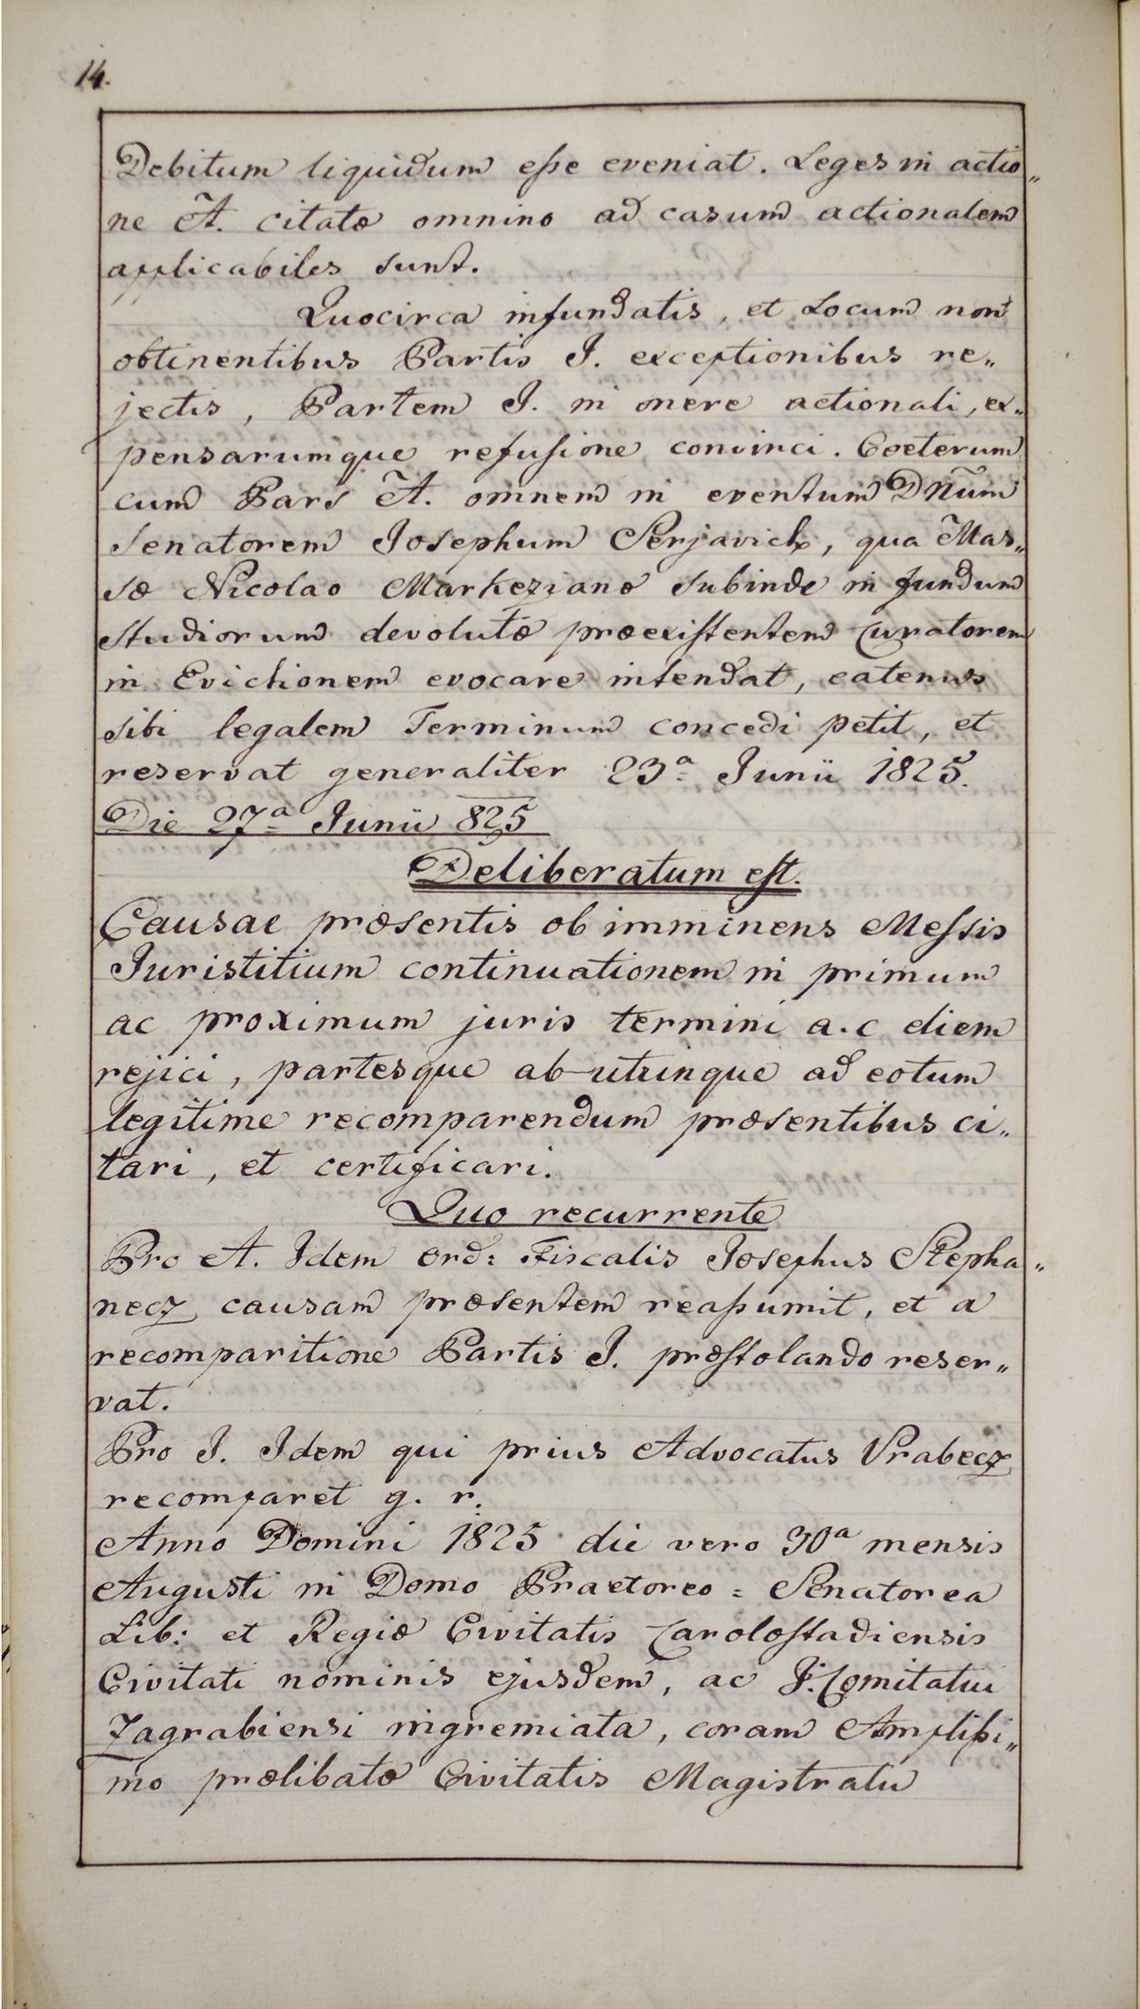 14.
Debitum liquidum eße eveniat. Leges in actio„
ne A. citatæ omnino ad casum actionalem
applicabiles sunt.
Quocirca infundatis, et Locum non
obtinentibus Partis I. exceptionibus re„
jectis, Partem I. in onere actionali, ex„
pensarumque refusione convinci. Cœterum
cum Pars A. omnem in eventum Dn̄um
Senatorem Josephum Perjavich, qua Mas„
sæ Nicolao Markezianæ subinde in fundum
studiorum devolutæ præexistentem Curatorem
in Evictionem evocare intendat, eatenus
sibi legalem Terminum concedi petit, et
reservat generaliter 23ª Junii 1825.
Die 27ª Junii 825
Deliberatum est.
Causae præsentis ob imminens Messis
Juristitium continuationem in primum
ac proximum juris termini a.c diem
rejici, partesque ab utrinque ad eotum
legitime recomparendum præsentibus ci„
tari, et certificari.
Quo recurrente
Pro A. Idem ord: Fiscalis Josephus Stepha„
necz causam præsentem reaßumit, et a
recomparitione Partis I. præstolando reser„
vat.
Pro I. Idem qui prius Advocatus Vrabecz
recomparet g. r.
Anno Domini 1825 die vero 30ª mensis
Augusti in Domo Praetoreo = Senatorea
Lib: et Regiæ Civitatis Carolostadiensis
Civitati nominis ejusdem, ac I: Comitatui
Zagrabiensi ingremiata, coram Amplißi„
mo prælibatæ Civitatis Magistratu